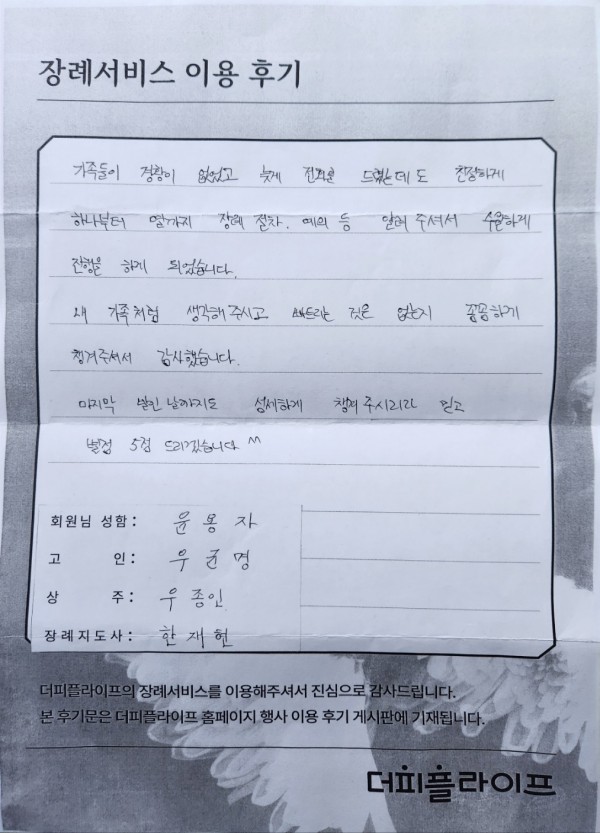 장례서비스 이용 후기
가족들이 경황이 없었고 늦게 전화를 드렸는데도 친절하게
하나부터 열까지 장례 절차. 예의 등 알려 주셔서 수월하게
진행을 하게 되었습니다.
내 가족처럼 생각해 주시고 빠트리는 것은 없는지 꼼꼼하게
챙겨주셔서 감사했습니다.
마지막 발인 날까지도 섬세하게 챙겨 주시리라 믿고
별점 5점 드리겠습니다 ^^
회원님 성함 : 윤봉자
고 인 : 우균명
상 주 : 우종인
장례지도사 : 한재현
더피플라이프의 장례서비스를 이용해주셔서 진심으로 감사드립니다.
본 후기문은 더피플라이프 홈페이지 행사 이용 후기 게시판에 기재됩니다.
더피플라이프